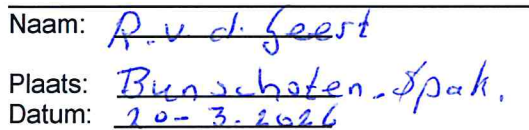 Naam: R.v.d. Geest
Plaats: Bunschoten-Spak.
Datum: 20-3.2026